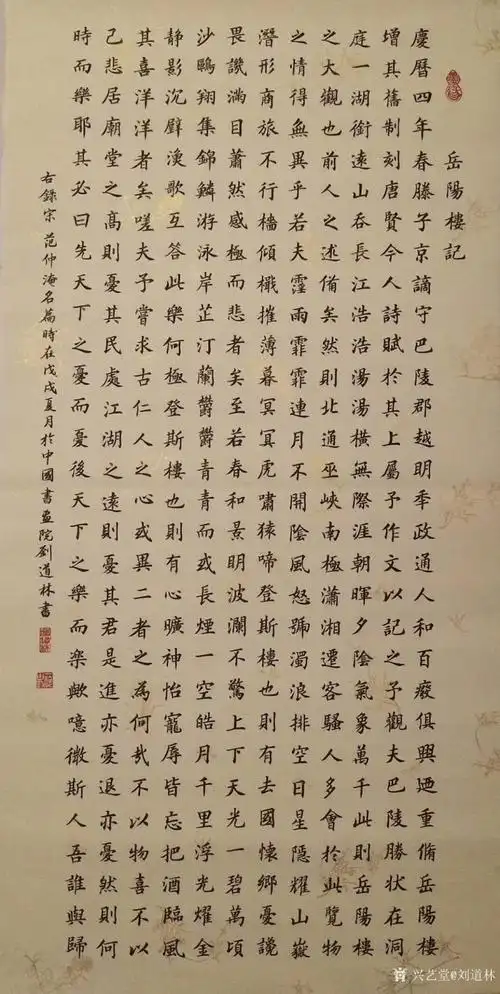 岳陽樓記
慶曆四年春滕子京謫守巴陵郡越明年政通人和百癈俱興迺重脩岳陽樓
增其舊制刻唐賢今人詩賦於其上屬予作文以記之予觀夫巴陵勝狀在洞
庭一湖銜遠山吞長江浩浩湯湯橫無際涯朝暉夕陰氣象萬千此則岳陽樓
之大觀也前人之述俻矣然則北通巫峽南極瀟湘遷客騷人多會於此覽物
之情得無異乎若夫霪雨霏霏連月不開陰風怒號濁浪排空日星隱耀山嶽
潛形商旅不行檣傾檝摧薄暮冥冥虎嘯猿啼登斯樓也則有去國懷鄉憂讒
畏譏滿目蕭然感極而悲者矣至若春和景明波瀾不驚上下天光一碧萬頃
沙鷗翔集錦鱗游泳岸芷汀蘭鬱鬱青青而或長煙一空皓月千里浮光耀金
静影沉璧漁歌互答此樂何極登斯樓也則有心曠神怡寵辱皆忘把酒臨風
其喜洋洋者矣嗟夫予嘗求古仁人之心或異二者之為何哉不以物喜不以
己悲居廟堂之高則憂其民處江湖之遠則憂其君是進亦憂退亦憂然則何
時而樂耶其必曰先天下之憂而憂後天下之樂而樂歟噫微斯人吾誰與歸
右錄宗范仲淹名篇時在戊戌夏月於中國書畫院劉道林書
兴艺堂@刘道林